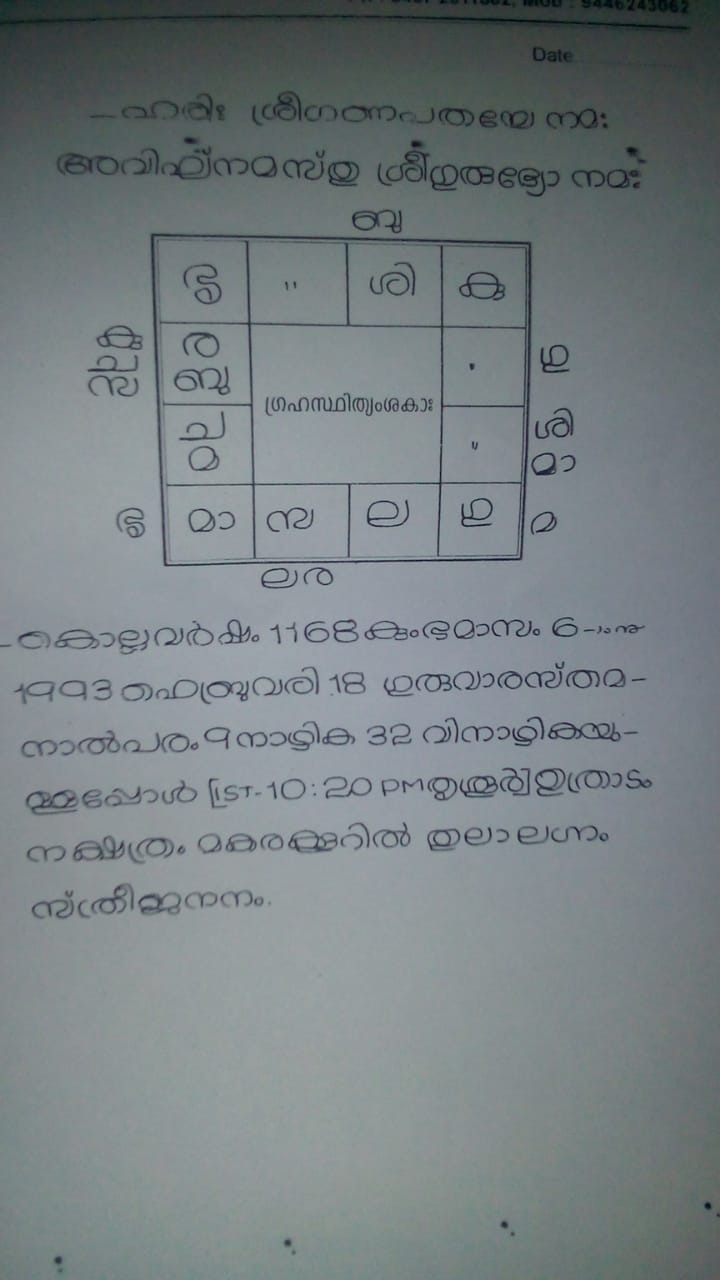 MOB : 9446243062
Date
ഹരിഃ ശ്രീഗണപതയേ നമഃ
അവിഘ്നമസ്തു ശ്രീഗുരുഭ്യോ നമഃ
ബു
ശു " ശി കു
കു സ്പ
ര ബു
ഗു
ഗ്രഹസ്ഥിത്യംശകാഃ
മ
ശി മാ
ഗു മാ സ ല ഗു മ
ലര
കൊല്ലവർഷം 1168 കുംഭമാസം 6-ാംനു
1993 ഫെബ്രുവരി 18 ഗുരുവാരസ്തമ-
നാൽപരം 9 നാഴിക 32 വിനാഴികക്കു-
ള്ളപ്പോൾ [IST-10:20 PM തൃശ്ശൂർ] ഉത്രാടം
നക്ഷത്രം മകരക്കൂറിൽ തുലാ ലഗ്നം
സ്ത്രീജനനം.